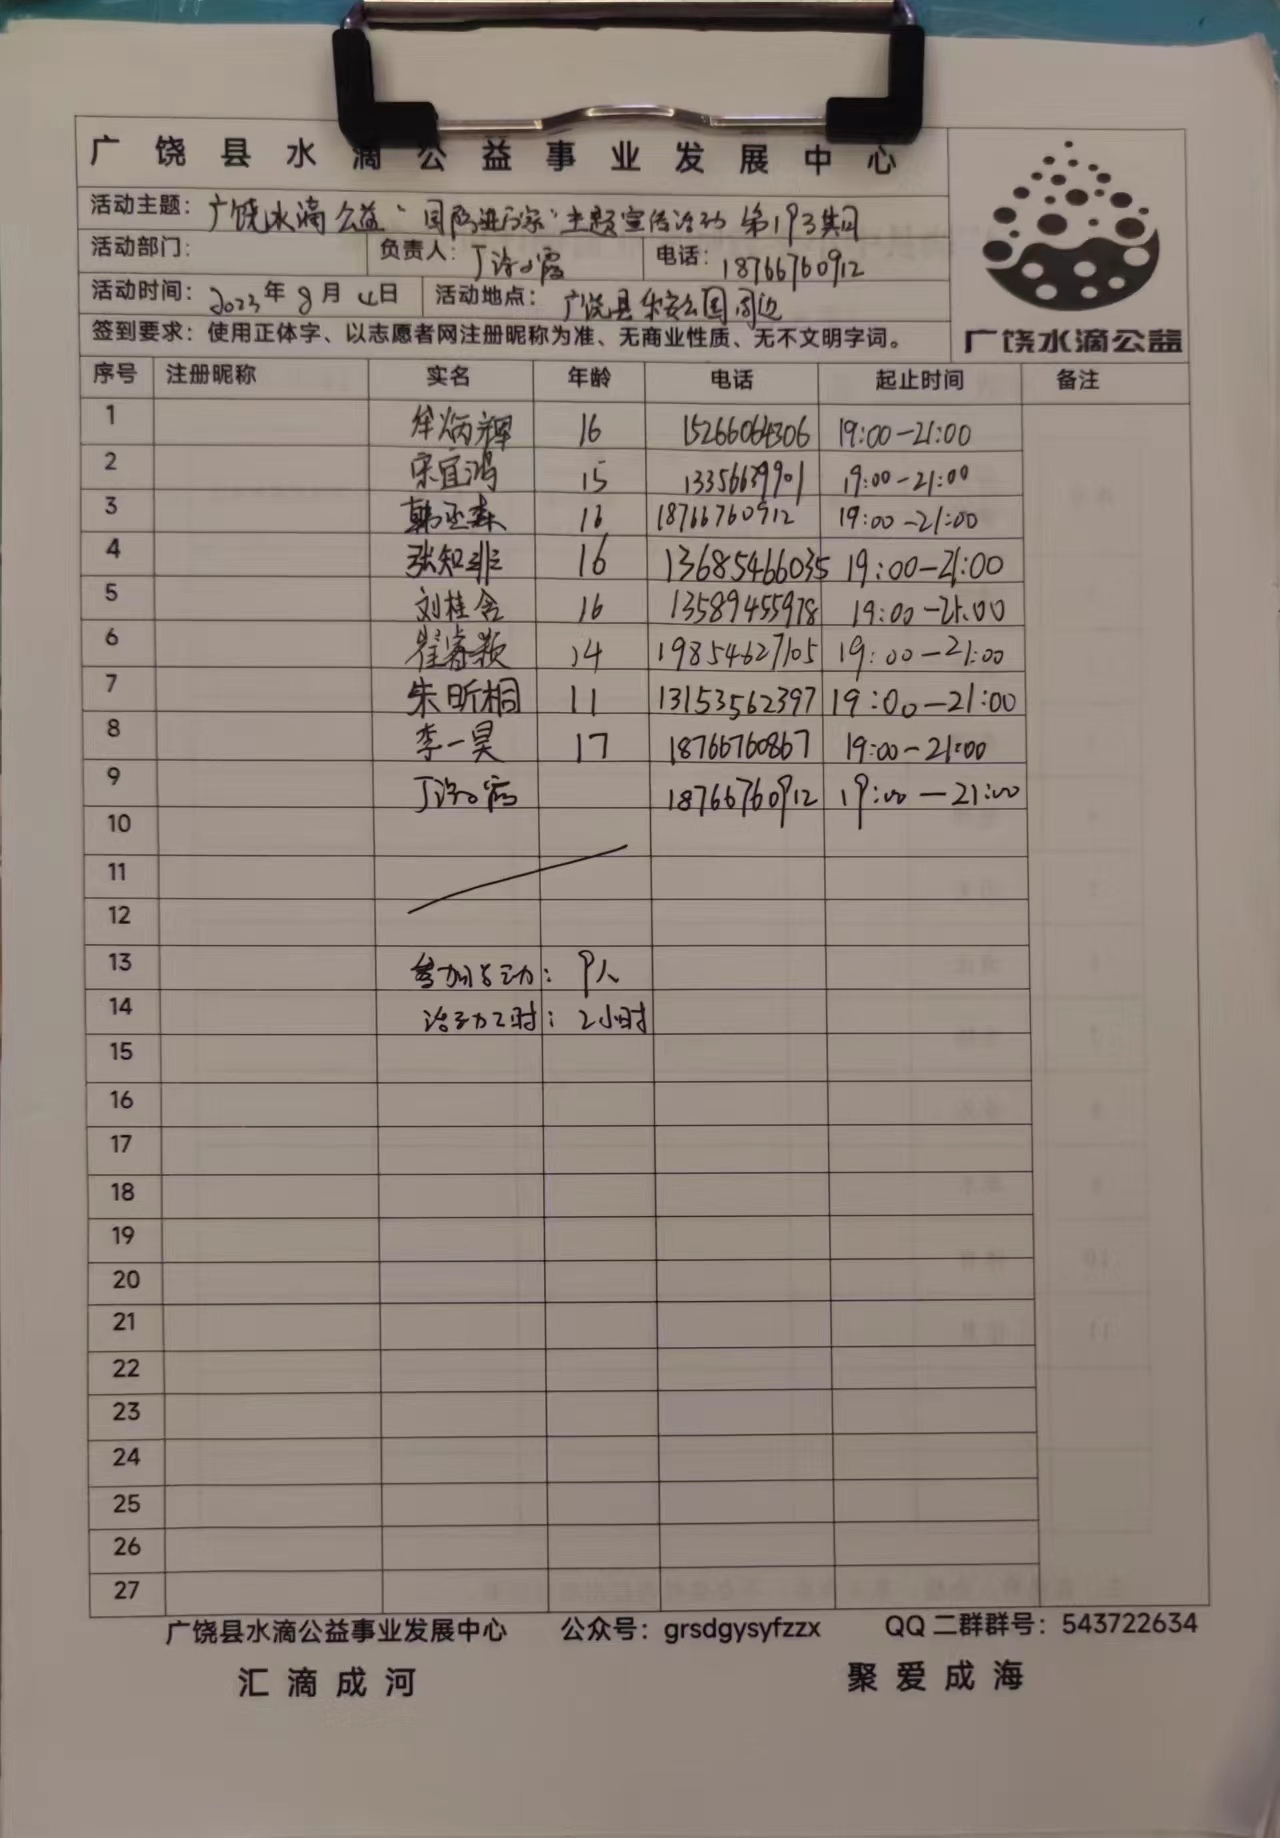 广饶县水滴公益事业发展中心
活动主题：广饶水滴公益"国防进万家"主题宣传活动 第193期
活动部门： 负责人：丁 霞 电话：18766760912
活动时间：2023年8月4日 活动地点：广饶县乐安公园周边
签到要求：使用正体字、以志愿者网注册昵称为准、无商业性质、无不文明字词。
广饶水滴公益
序号 注册昵称 实名 年龄 电话 起止时间 备注
1 牟炳辉 16 15266064306 19:00-21:00
2 宋宜鸿 15 13356639901 19:00-21:00
3 韩丞森 16 18766760912 19:00-21:00
4 张知非 16 13685466035 19:00-21:00
5 刘桂含 16 13589455978 19:00-21:00
6 崔睿颖 14 19854627105 19:00-21:00
7 朱昕桐 11 13153562397 19:00-21:00
8 李一昊 17 18766760867 19:00-21:00
9 丁 霞 18766760912 19:00-21:00
10
11
12
13 参加活动：9人
14 活动工时：2小时
15
16
17
18
19
20
21
22
23
24
25
26
27
广饶县水滴公益事业发展中心 公众号：grsdgysyfzzx QQ二群群号：543722634
汇滴成河 聚爱成海